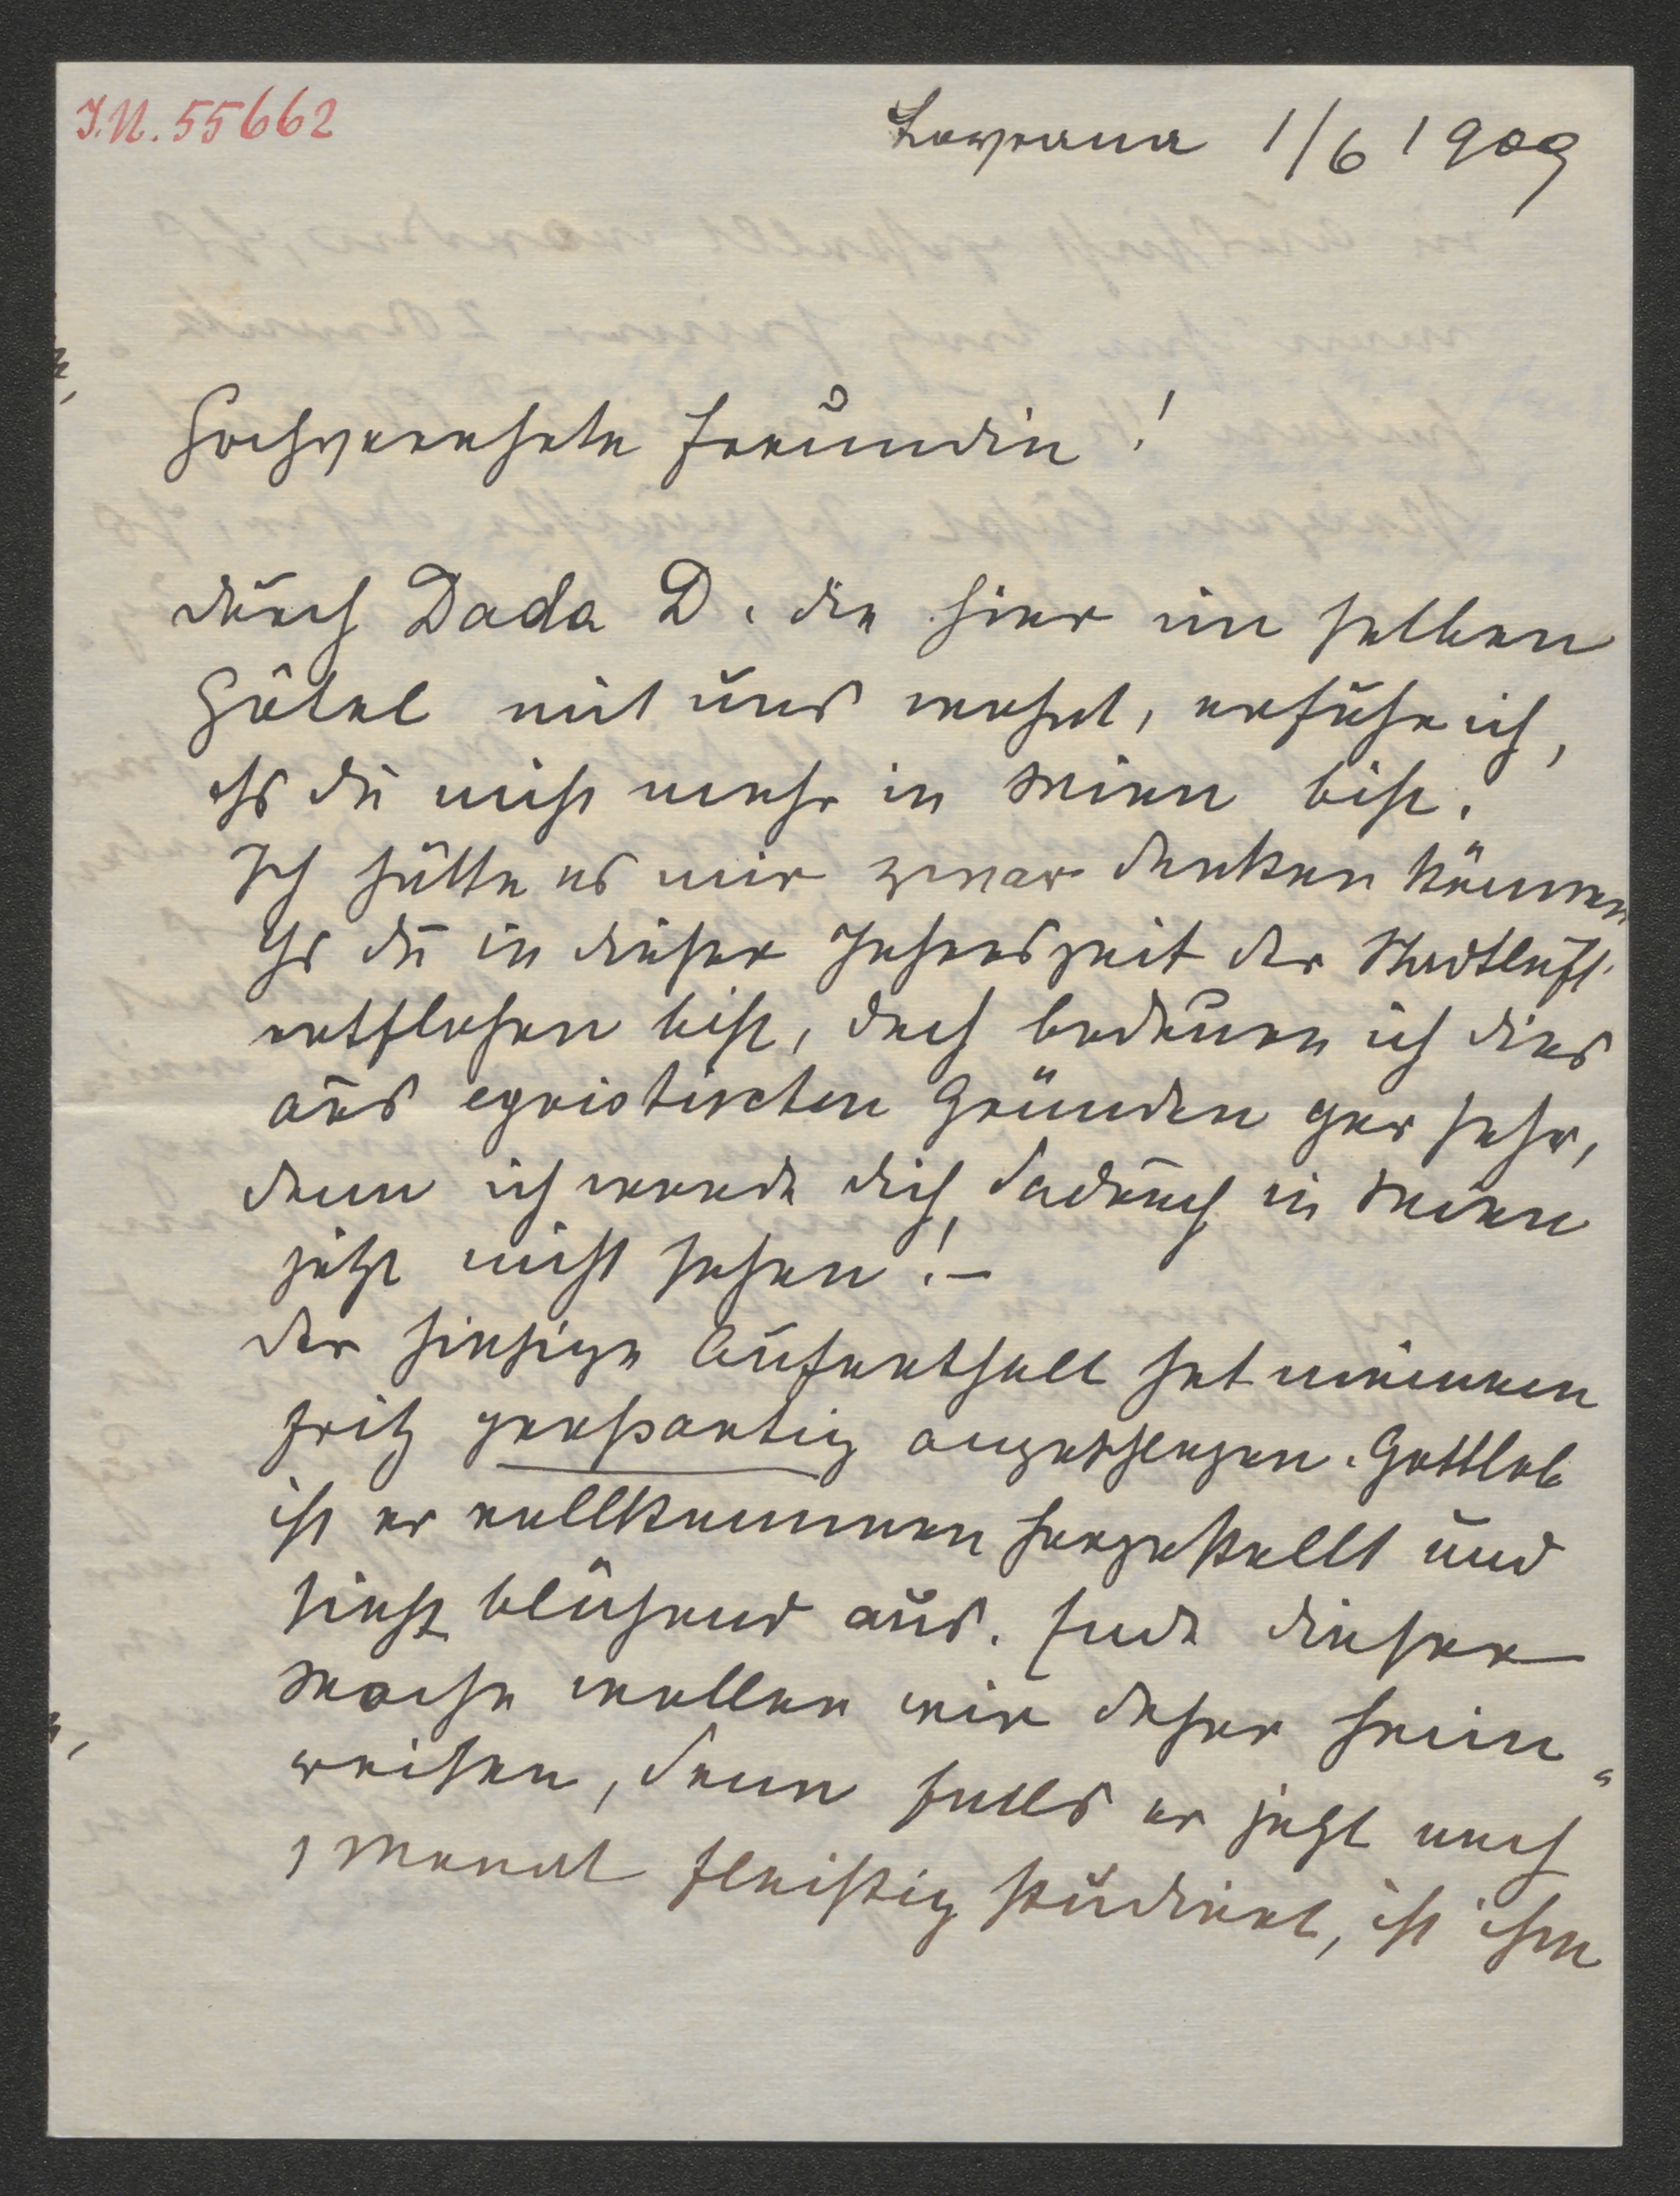 I.N. 55662
Lovrana 1/6 1909
Hochverehrte Freundin!
durch Dada D. die hier im selben
Hôtel mit uns wohnt, erfuhr ich,
dß du nicht mehr in Wien bist.
Ich hätte es mir zwar denken können
dß du in dieser Jahreszeit der Stadtluft
entflohen bist, doch bedaure ich dies
aus egoistischen Gründen gar sehr,
denn ich werde dich dadurch in Wien
jetzt nicht sehen! –
Der hiesige Aufenthalt hat meinem
Fritz großartig angeschlagen. Gottlob
ist er vollkommen hergestellt und
sieht blühend aus. Ende dieser
Woche wollen wir daher heim„
reisen, denn falls er jetzt noch
1 Monat fleißig studiert, ist ihm